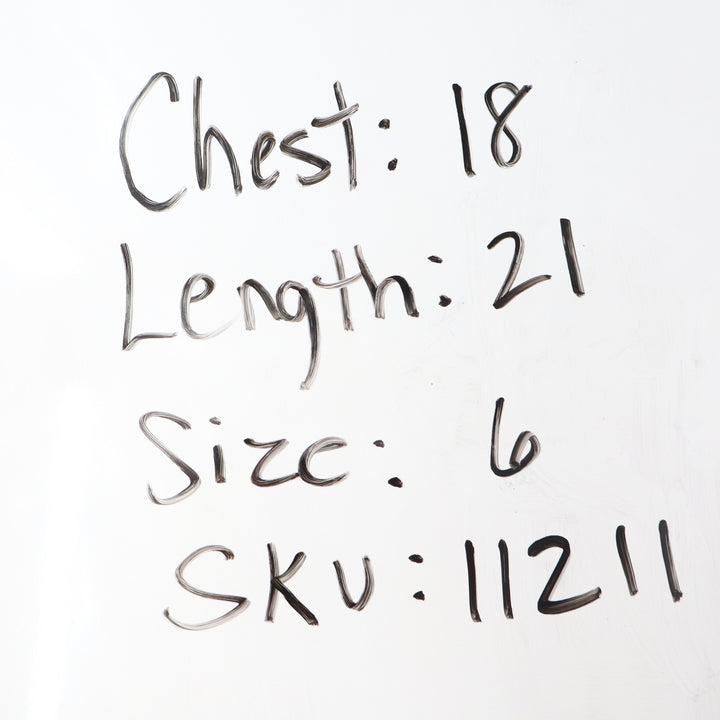 Chest: 18
Length: 21
Size: 6
SKU: 11211